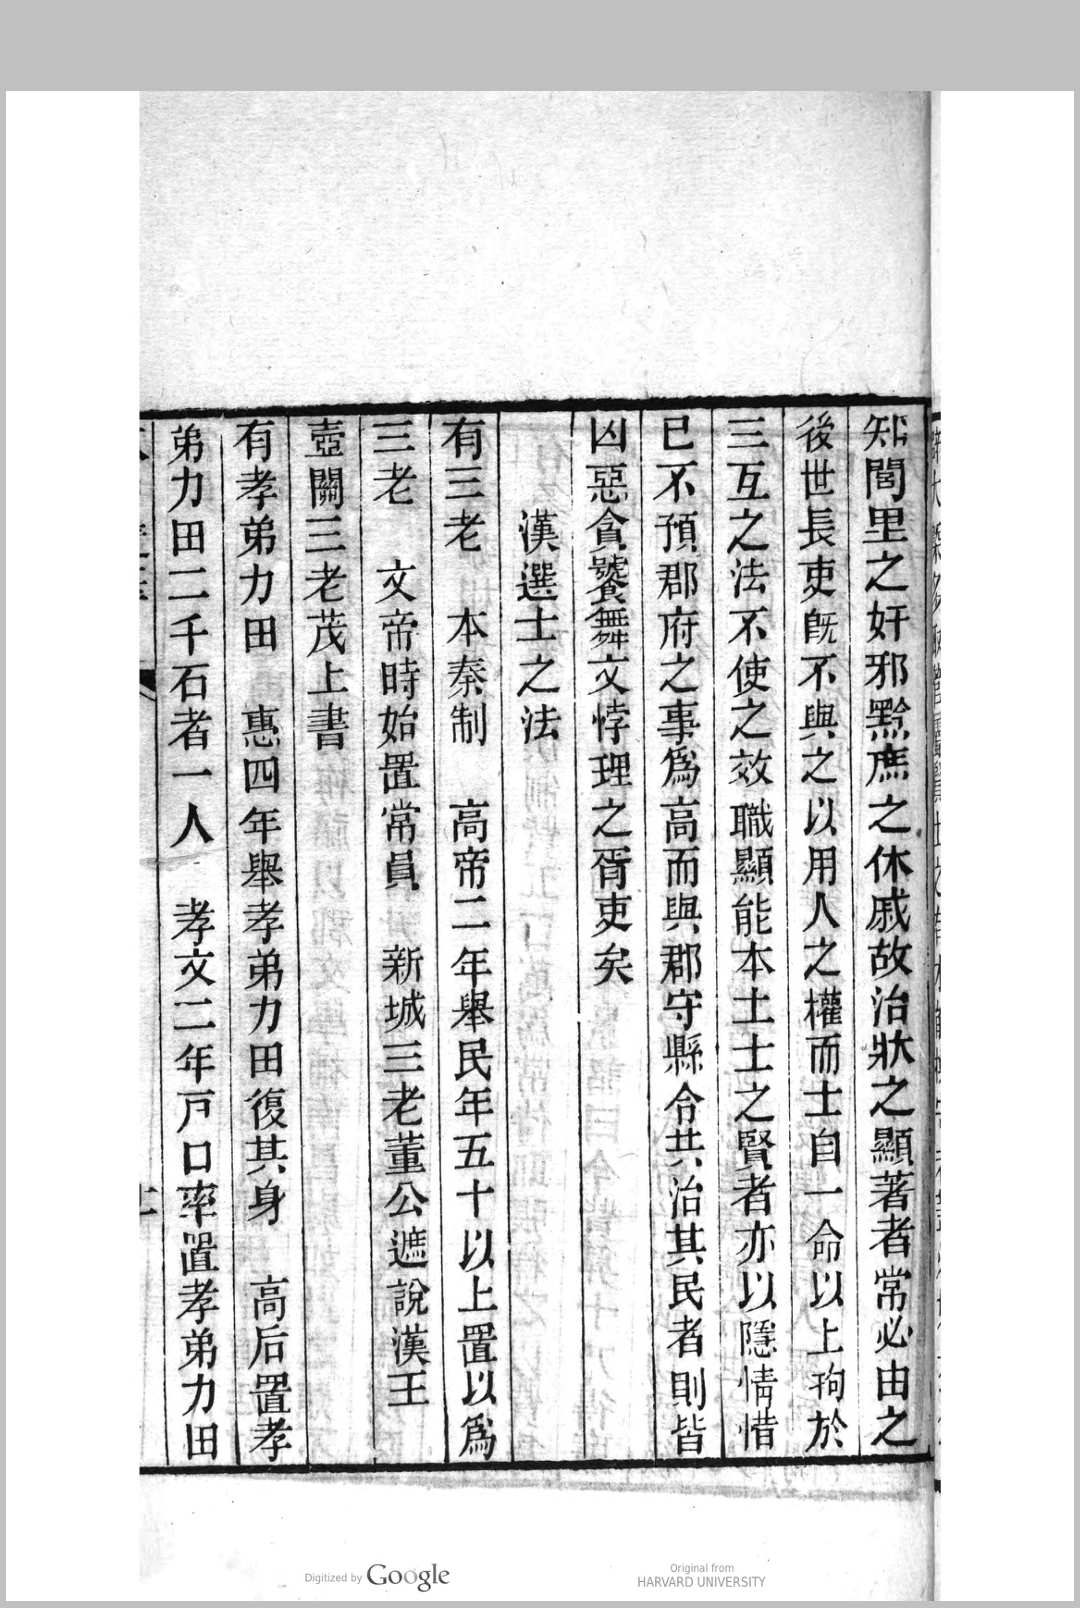 知閭里之奸邪黔庶之休戚故治狀之顯著者常必由之
後世長吏旣不與之以用人之權而士自一命以上拘於
三互之法不使之效職顯能本土士之賢者亦以隱情惜
已不預郡府之事爲高而與郡守縣令共治其民者則皆
凶惡貪饕舞文悖理之胥吏矣
漢選士之法
有三老 本秦制 高帝二年舉民年五十以上置以爲
三老 文帝時始置常員 新城三老董公遮說漢王
壺關三老茂上書
有孝弟力田 惠四年舉孝弟力田復其身 高后置孝
弟力田二千石者一人 孝文二年戸口率置孝弟力田
Digitized by Google
Original from
HARVARD UNIVERSITY